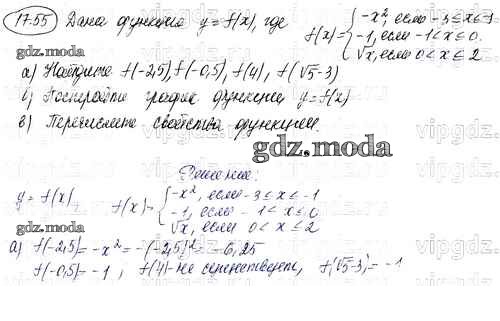 17.55 Дана функция y = f(x), где f(x) = { -x², если -3 ≤ x ≤ -1
-1, если -1 < x ≤ 0.
√x, если 0 < x ≤ 2
а) Найдите f(-2,5), f(-0,5), f(4), f(√5-3)
б) Постройте график функции y = f(x)
в) Перечислите свойства функции.
gdz.moda
Решение:
y = f(x), f(x) = { -x², если -3 ≤ x ≤ -1
-1, если -1 < x ≤ 0
√x, если 0 < x ≤ 2
а) f(-2,5) = -x² = -(-2,5)² = -6,25
f(-0,5) = -1, f(4) - не существует, f(√5-3) = -1